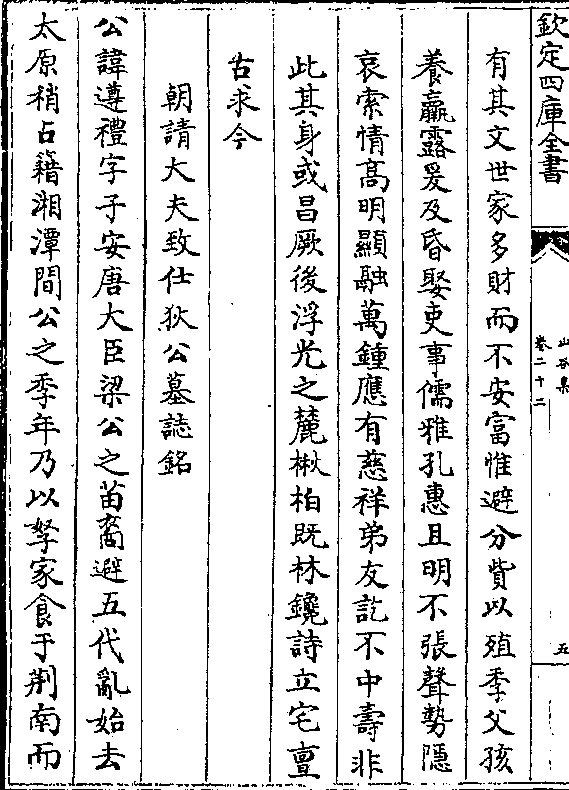 欽定四庫全書
山谷集
卷二十二
五
有其文世家多財而不安富惟避分貲以殖季父孩
養羸露爰及昏娶吏事儒雅孔惠且明不張聲勢隱
哀索情髙明顯融萬鍾應有慈祥弟友訖不中壽非
此其身或昌厥後浮光之麓楸柏既林鑱詩立宅亶
古求今
朝請大夫致仕狄公墓誌銘
公諱遵禮字子安唐大臣梁公之苗裔避五代亂始去
太原稍占籍湘潭間公之季年乃以孥家食于荆南而